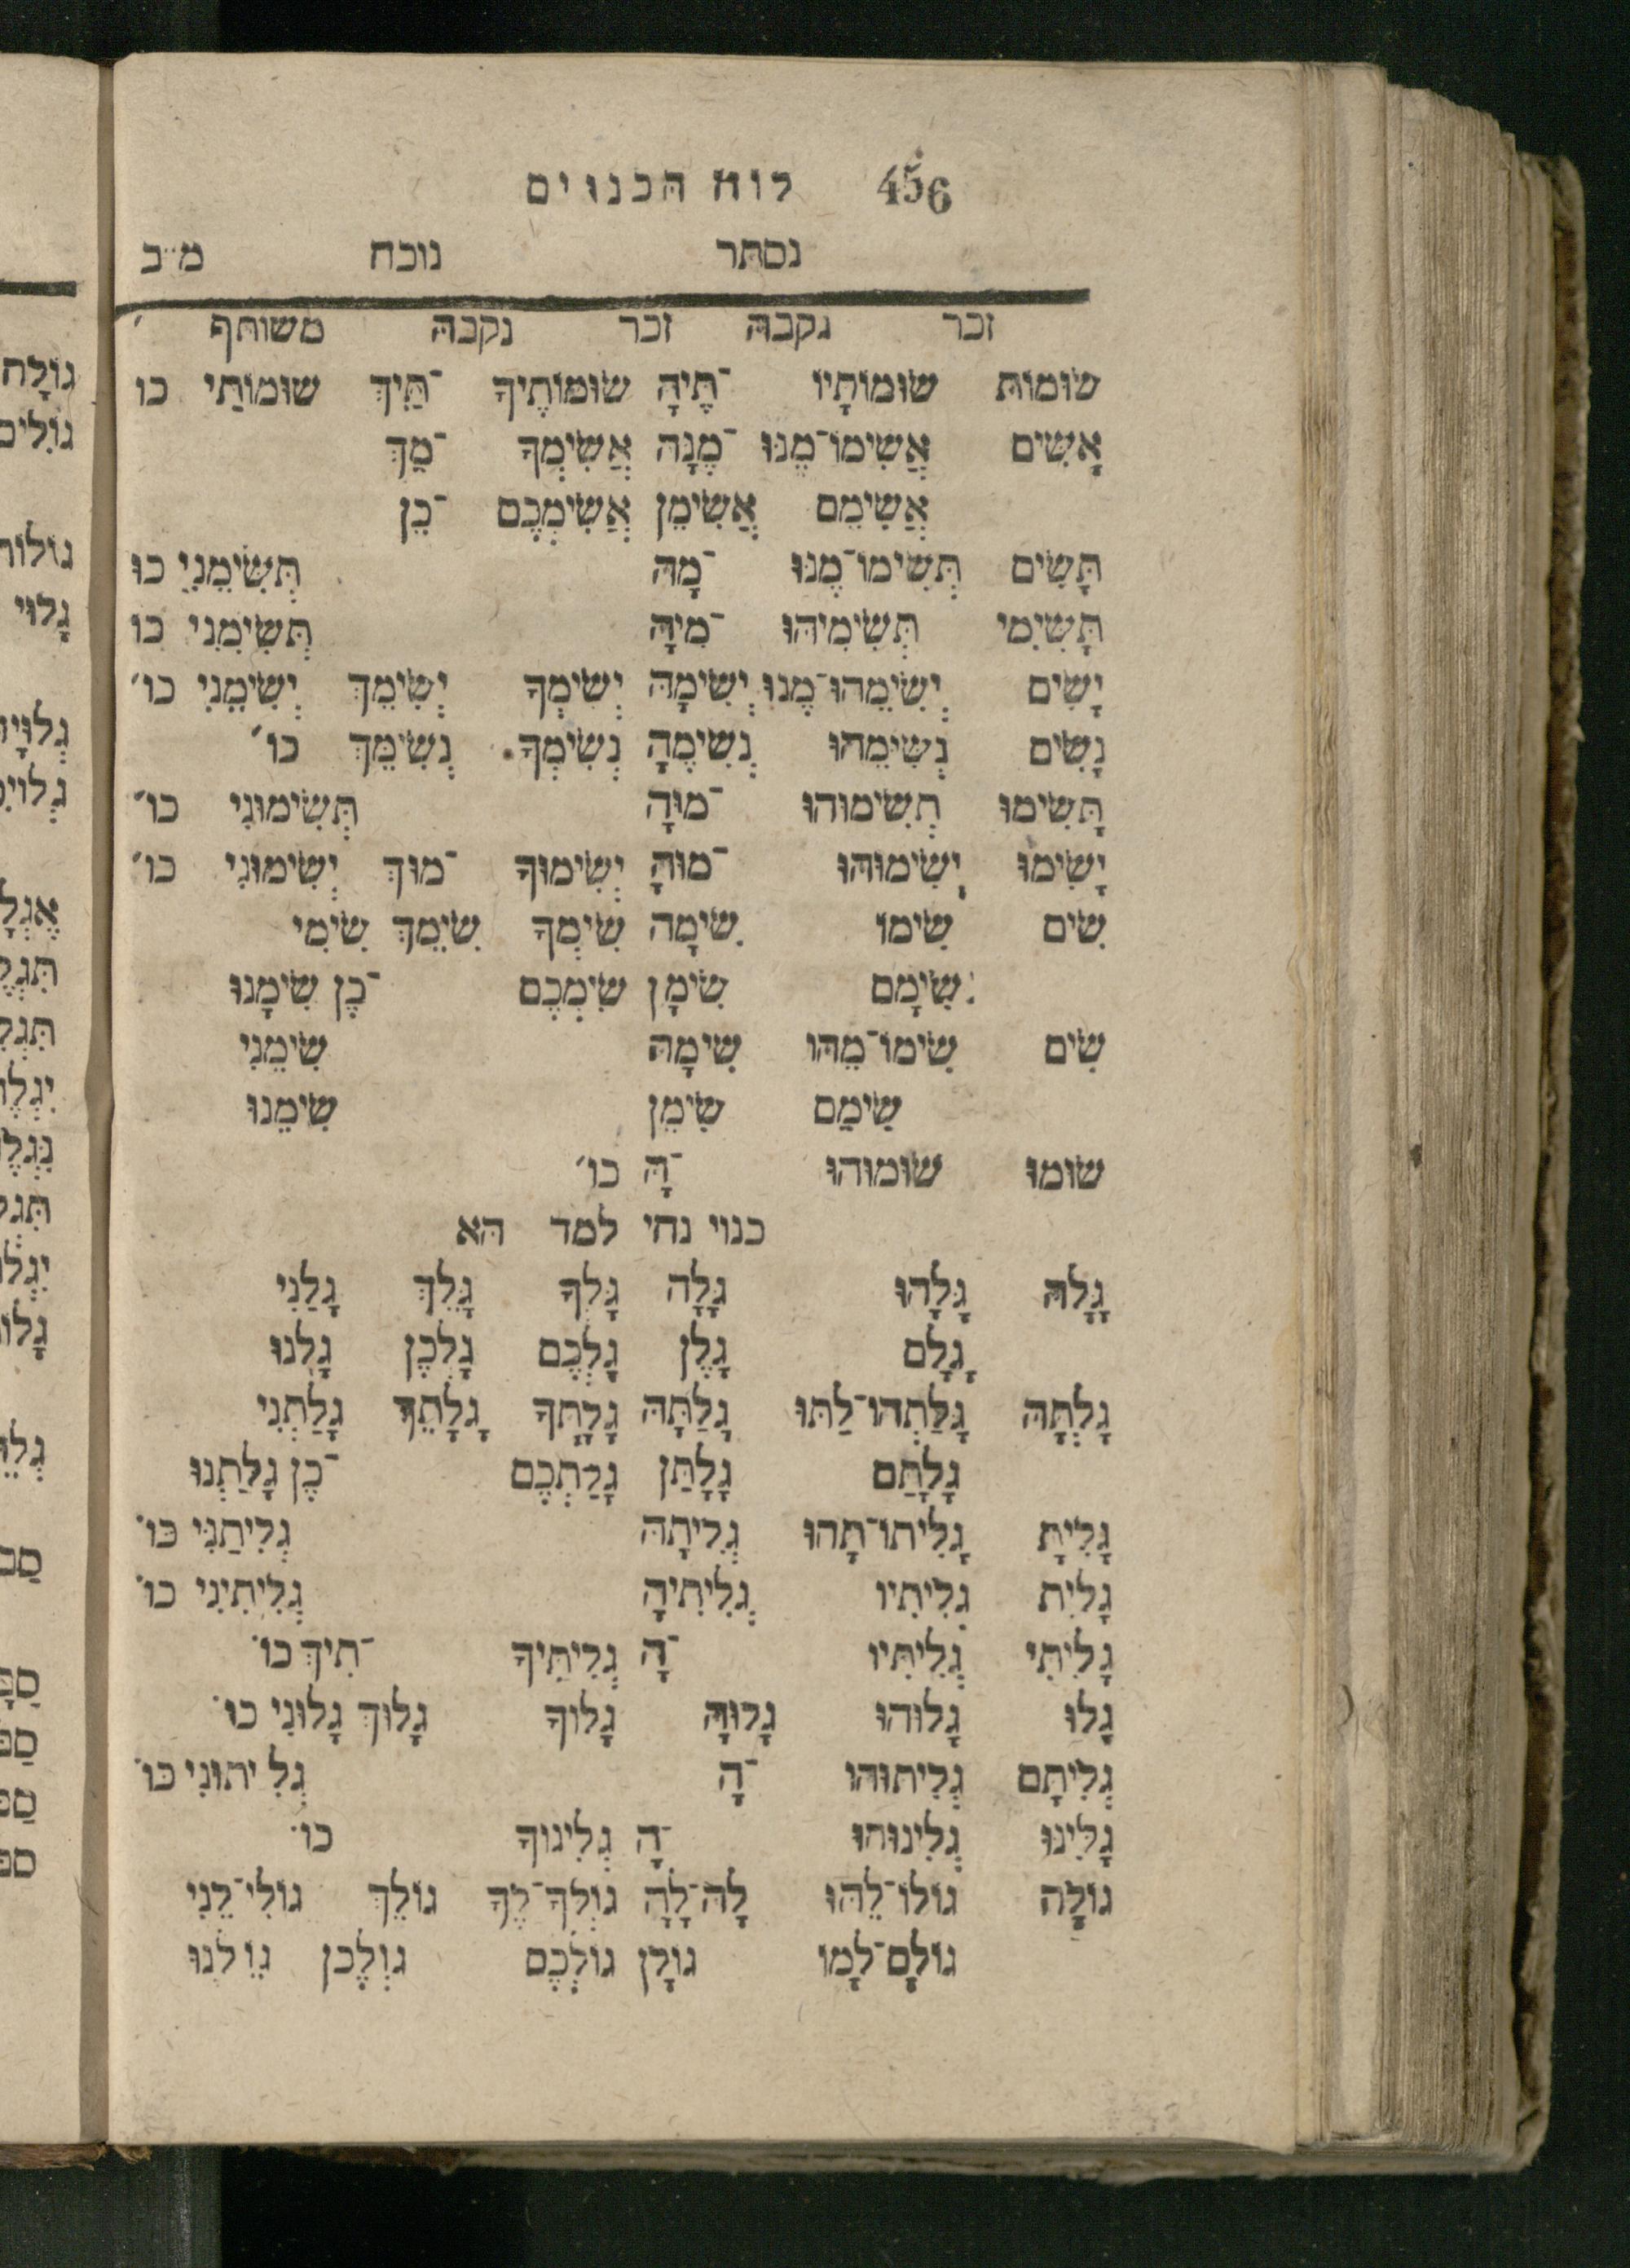 456 לוח הכנוים
נסתר נוכח מ״ב
זכר נקבה זכר נקבה משותף ׳
שׂוּמוֹת שׂוּמוֹתָיו ־תֶיהָ שׂוּמוֹתֶיךָ ־תַּיִךְ שׂוּמוֹתַי כו
אָשִׂים אֲשִׂימוֹ־מֶנּוּ ־מֶנָּה אֲשִׂימְךָ ־מֵךְ
אֲשִׂימֵם אֲשִׂימֵן אֲשִׂימְכֶם ־כֵן
תָּשִׂים תְּשִׂימוֹ־מֶנּוּ ־מָהּ תְּשִׂימֵנִי כו
תָּשִׂימִי תְּשִׂימִיהוּ ־מִיהָ תְּשִׂימִנִי כו
יָשִׂים יְשִׂימֵהוּ־מֶנּוּ יְשִׂימָהּ יְשִׂימְךָ יְשִׂימֵךְ יְשִׂימֵנִי כו׳
נָשִׂים נְשִׂימֵהוּ נְשִׂימֶהָ נְשִׂימְךָ נְשִׂימֵךְ כו׳
תָּשִׂימוּ תְשִׂימוּהוּ ־מוּהָ תְּשִׂימוּנִי כו׳
יָשִׂימוּ יְשִׂימוּהוּ ־מוּהָ יְשִׂימוּךָ ־מוּךְ יְשִׂימוּנִי כו׳
שִׂים שִׂימוֹ שִׂימָהּ שִׂימְךָ שִׂימֵךְ שִׂימִי
שִׂימָם שִׂימָן שִׂימְכֶם ־כֶן שִׂימָנוּ
שִׂים שִׂימוֹ־מֵהוּ שִׂימָהּ שִׂימֵנִי
שִׂימֵם שִׂימֵן שִׂימֵנוּ
שׂוּמוּ שׂוּמוּהוּ ־הָ כו׳
כנוי נחי למד הא
גָּלָה גָּלָהוּ גָלָהּ גָּלְךָ גָּלֵךְ גָלַנִי
גָלָם גָלֶן גָלְכֶם גָלְכֶן גָלְנוּ
גָלְתָה גָּלַתְהוּ־לַתּוּ גָלַתָּה גָלָתְךָ גָלָתֵךְ גָלַתְנִי
גָלָתַם גָלָתַן גָלַתְכֶם ־כֶן גָלַתְנוּ
גָלִיתָ גָלִיתוֹ־תָהוּ גְלִיתָהּ גְלִיתַנִי כו׳
גָלִית גְלִיתִיו גְלִיתִיהָ גְלִיתִינִי כו׳
גָלִיתִי גְלִיתִּיו ־הָ גְלִיתִיךָ ־תִיךְ כו׳
גָלוּ גָלוּהוּ גָלוּהָ גָלוּךָ גָלוּךְ גָלוּנִי כו׳
גְלִיתָם גְלִיתוּהוּ ־הָ גְלִיתוּנִי כו׳
גָלִינוּ גְלִינוּהוּ ־הָ גְלִינוּךָ כו׳
גוֹלֶה גוֹלוֹ־לֵהוּ לָהּ־לֶהָ גוֹלְךָ־לֶךָ גוֹלֵךְ גוֹלִי־לֵנִי
גוֹלָם־לָמוֹ גוֹלָן גוֹלְכֶם גוֹלְכֶן גוֹלֵנוּ